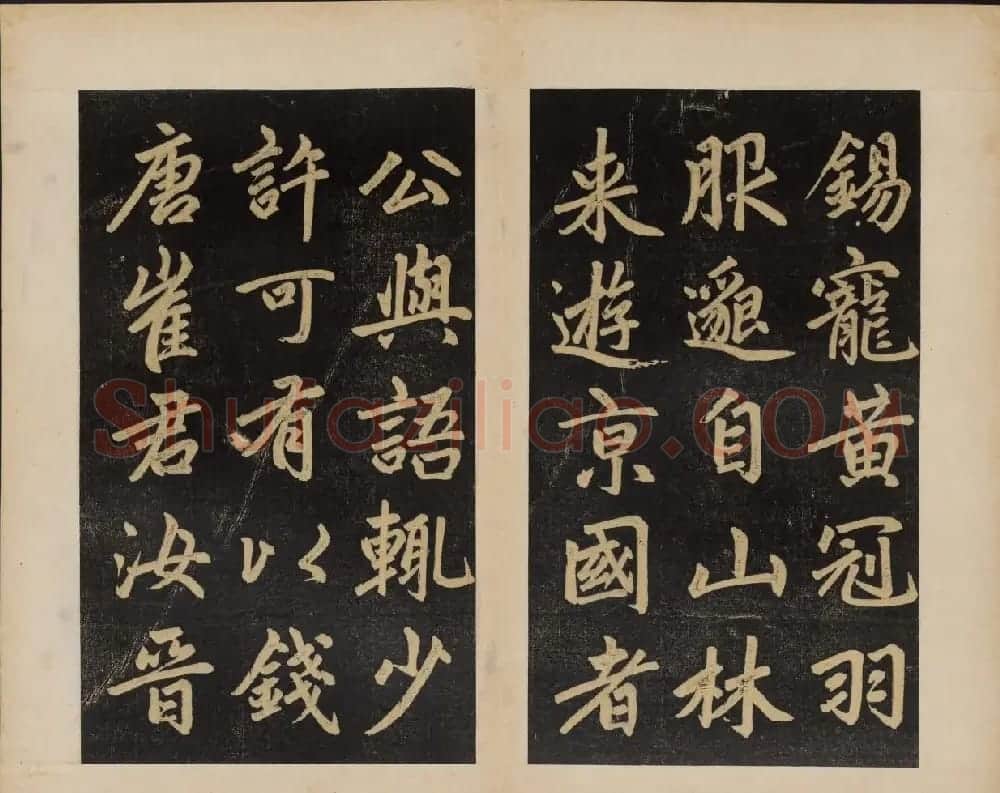 錫寵黄冠羽
服邈自山林
来遊京國者
公與語輒少
許可有以錢
唐崔君汝晉
Shufaziliao.COM